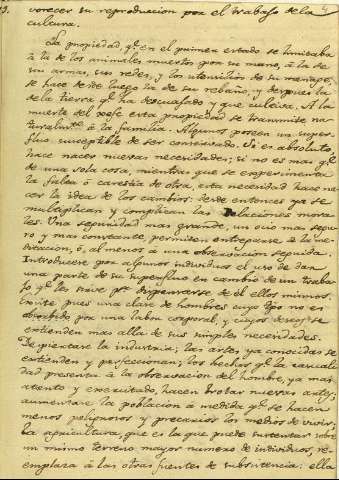 vorecer su reproduccion por el trabajo de la
cultura.
La propiedad, q.e en el primer estado se limitaba
á la de los animales muertos por su mano, á la de
sus armas, sus redes, y los utensilios de su menage,
se hace desde luego la de su rebaño, y despues la
de la tierra q.e ha descuajado y que cultiva. Á la
muerte del xefe esta propiedad se transmite na-
turalm.te á la familia. Algunos poseen un super-
fluo susceptible de ser conservado. Si es absoluto,
hace nacer nuevas necesidades; si no es mas q.e
de una sola cosa, mientras que se experimenta
la falta ó carestia de otra, esta necesidad hace na-
cer la idea de los cambios: desde entonces ya se
multiplican y complican las Relaciones mora-
les. Una seguridad mas grande, un ocio mas segu-
ro y mas constante permiten entregarse á la me-
ditacion, ó, al menos á una observacion seguida.
Introducese por algunos individuos el uso de dar
una parte de su superfluo en cambio de un traba-
jo q.e les sirve p.a dispensarse de él ellos mismos.
Existe pues una clase de hombres cuyo tpo no es
absorbido por una labor corporal, y cuyos deseos se
extienden mas alla de sus simples necesidades.
Despiertase la industria; las artes ya conocidas se
extienden y perfeccionan; los hechos q.e la casuali-
dad presenta á la observacion del hombre, ya mas
atento y exercitado, hacen brotar nuevas artes;
aumentase la poblacion á medida q.e se hacen
menos peligrosos y precarios los medios de vivir;
la agricultura, que es la que puede sustentar sobre
un mismo terreno mayor numero de individuos, re-
emplaza á las otras fuentes de subsistencia: ella